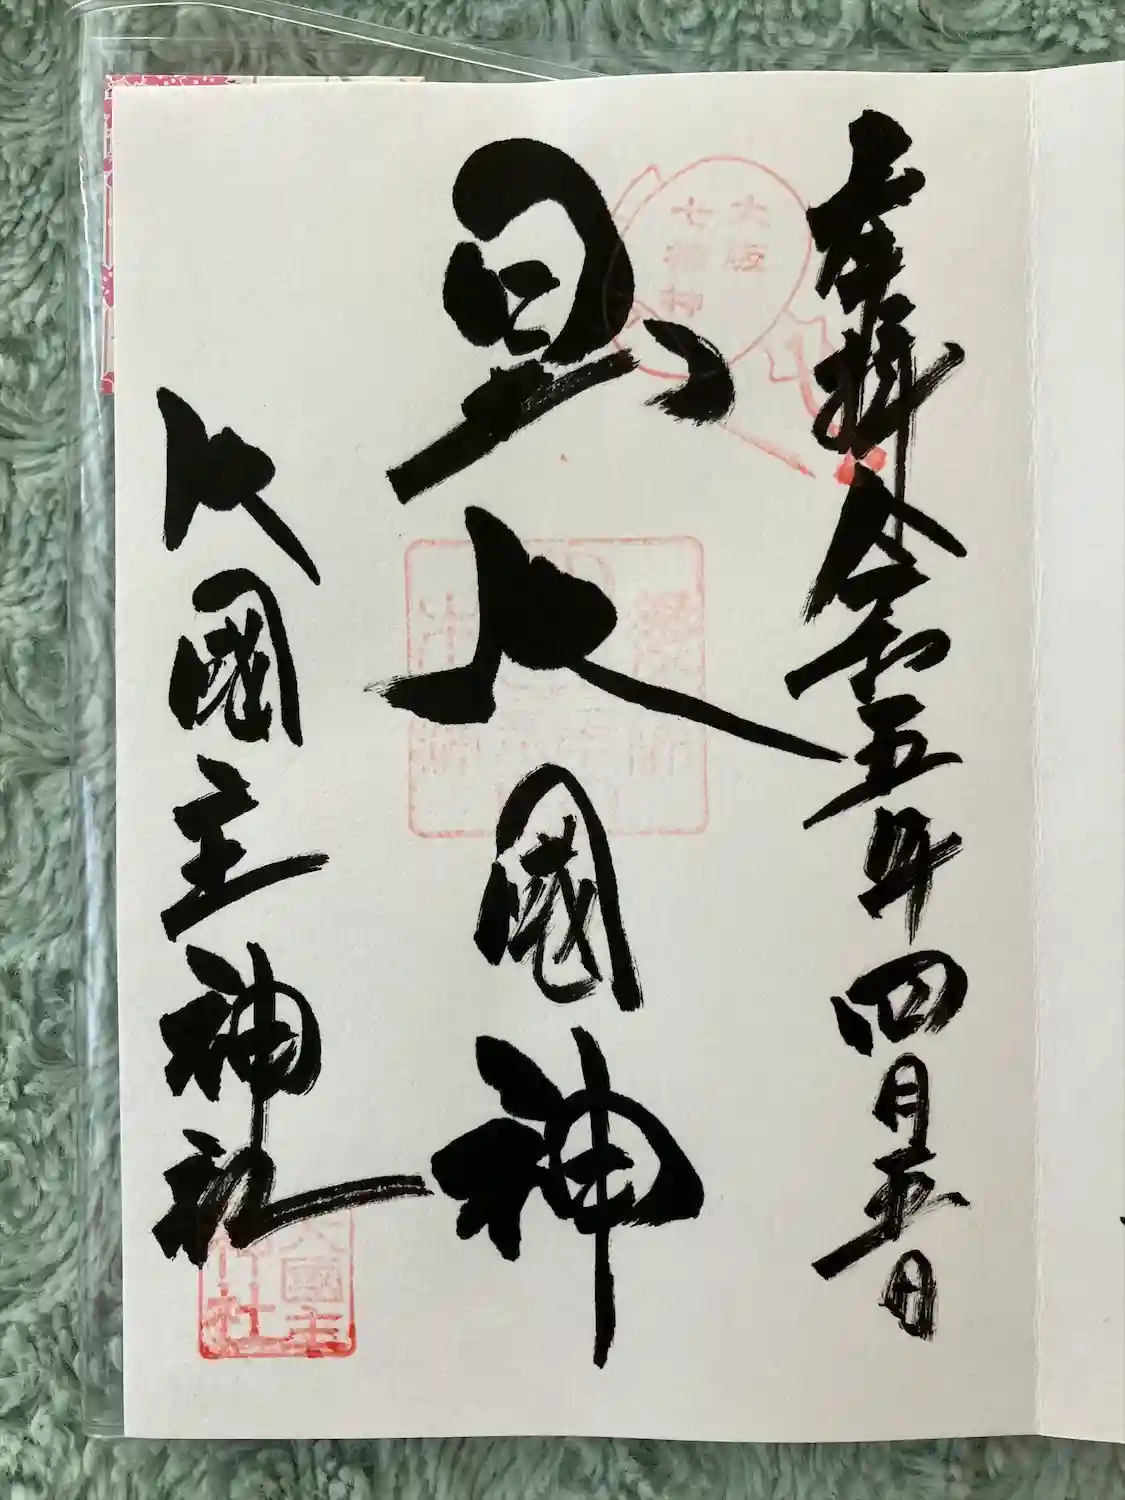 奉拝 令和五年四月五日
大阪
七福神
日出大國神
大國主神社
大國主
神社